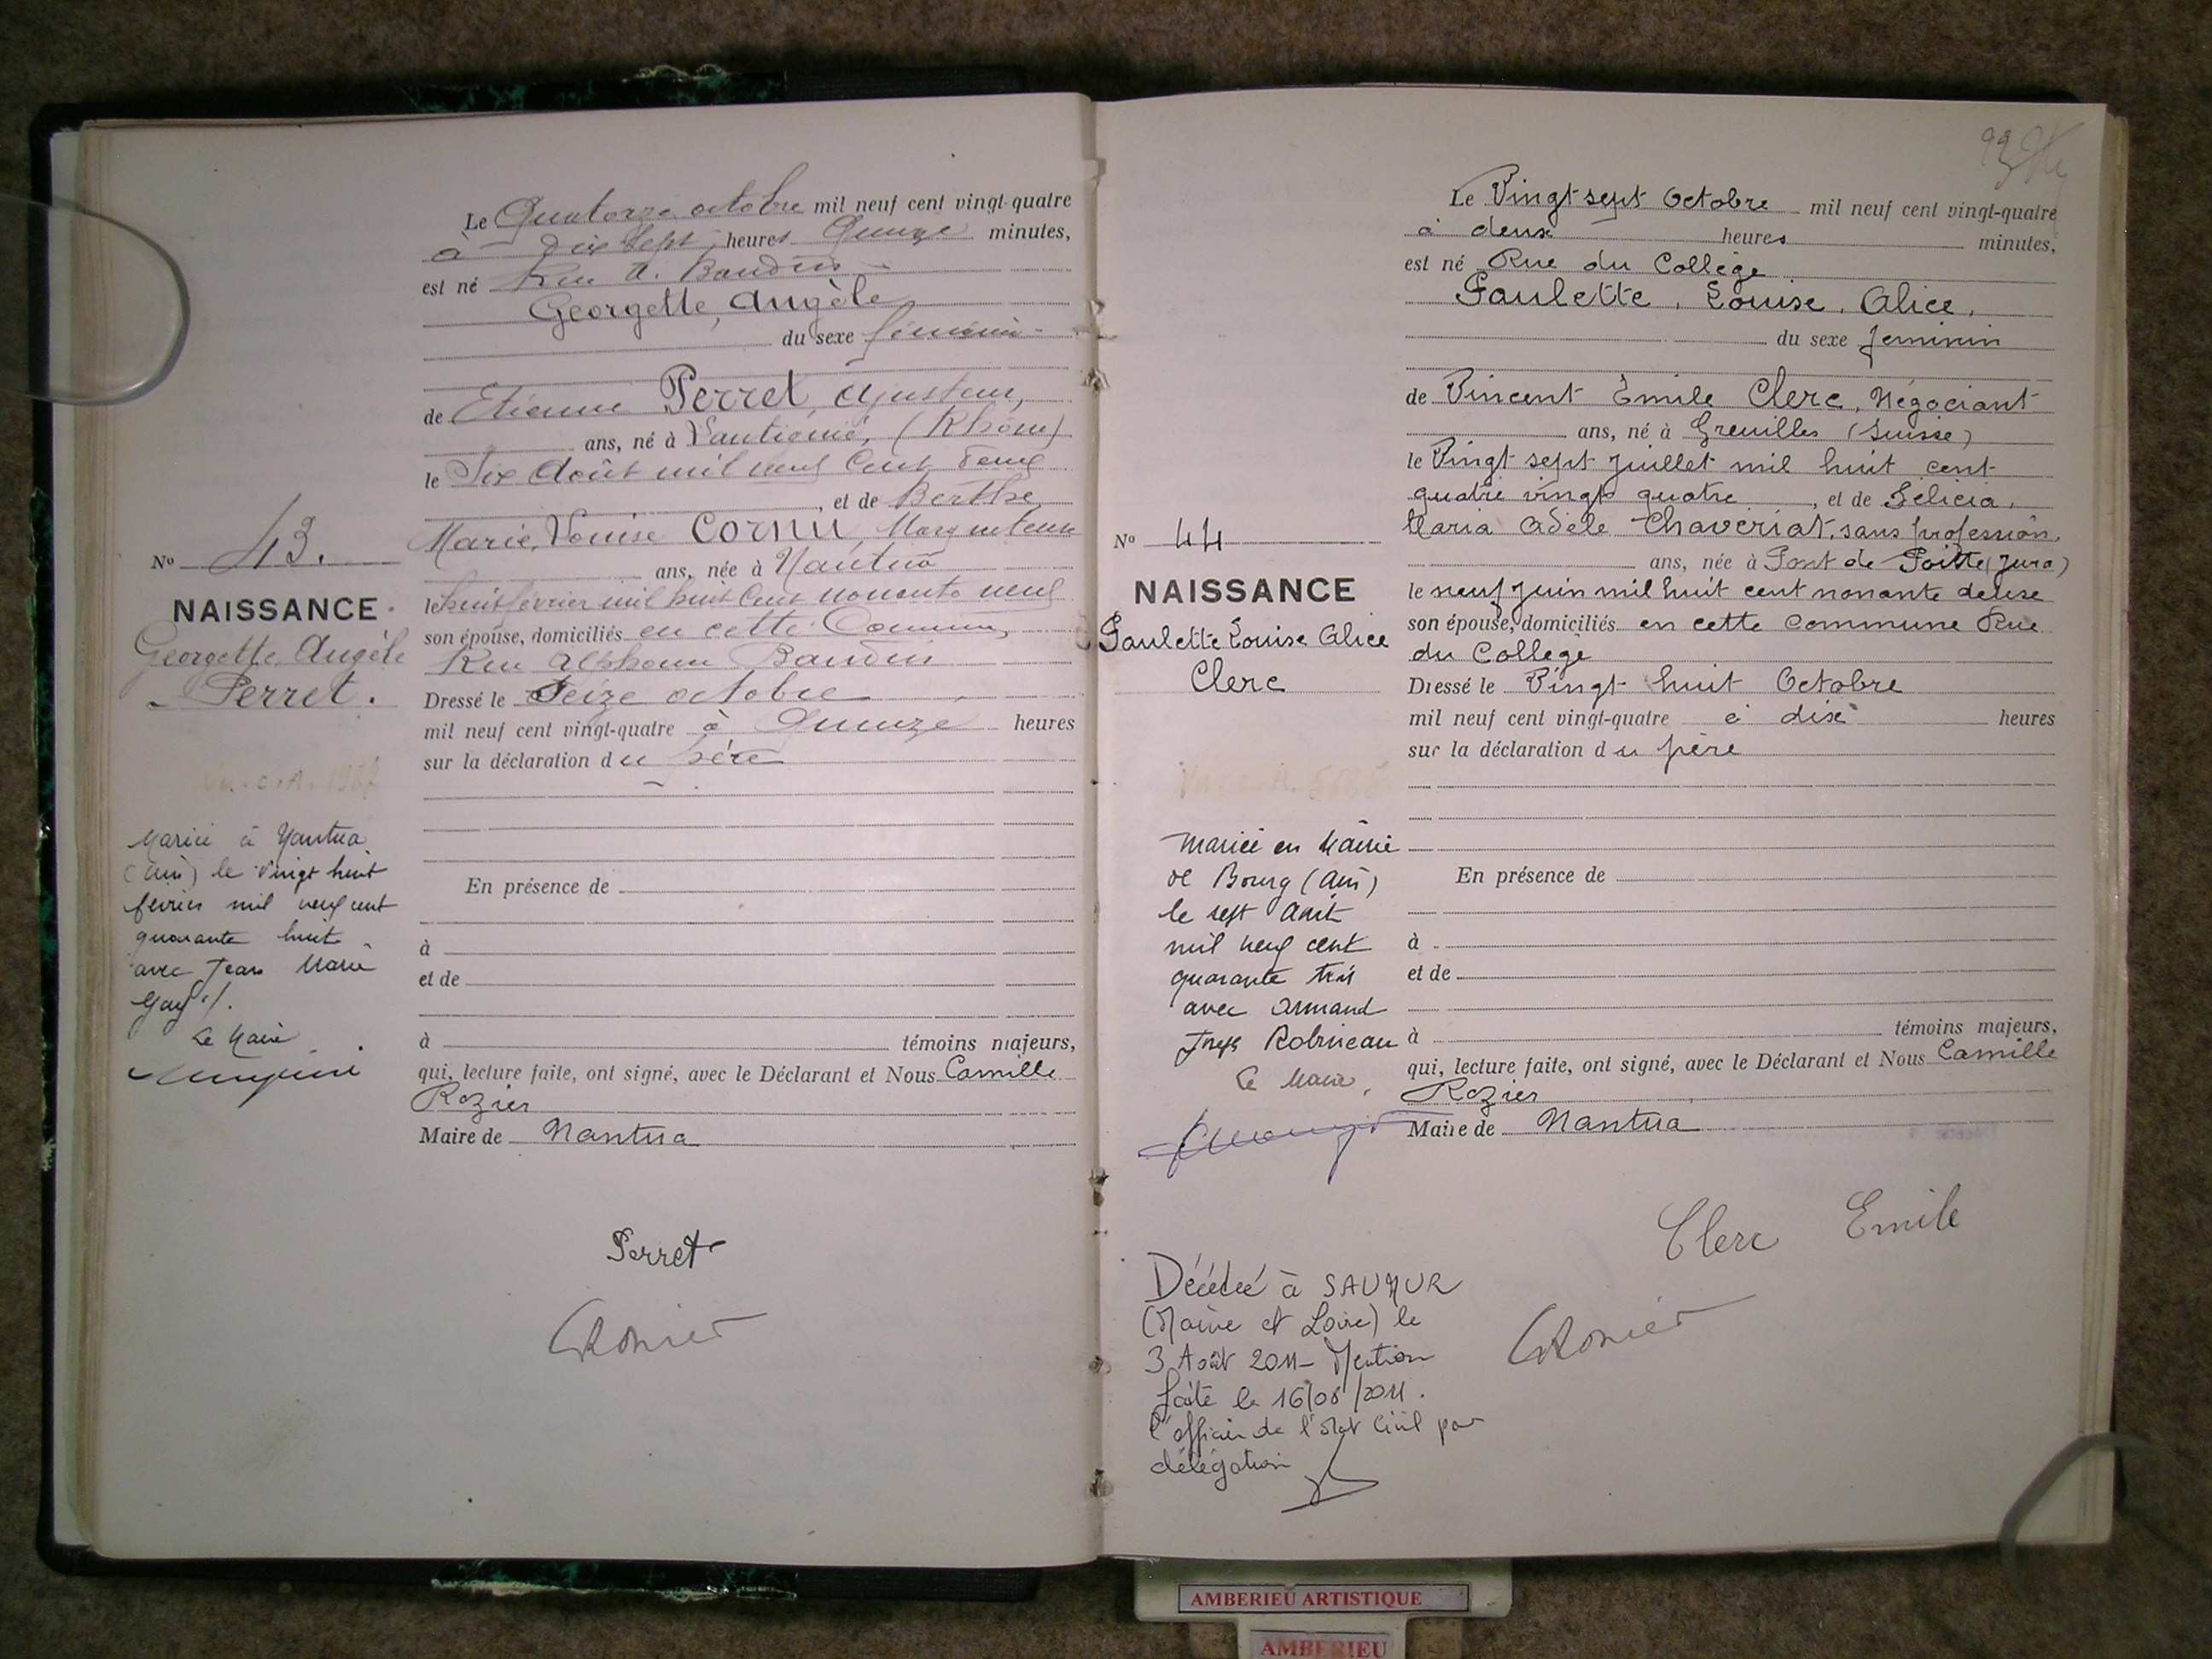 Le Quatorze octobre mil neuf cent vingt-quatre
à dix sept heures Quinze minutes,
est né Rue A. Baudin
Georgette, Angèle
du sexe féminin
de Etienne Perret, Ajusteur,
ans, né à (Rhône)
le Six Août mil neuf cent
, et de Berthe
Marie, Louise Cornu,
ans, née à Nantua
le huit février mil huit cent nonante neuf
son épouse, domiciliés en cette Commune,
Rue Alphonse Baudin
Dressé le Seize octobre
mil neuf cent vingt-quatre à Quinze heures
sur la déclaration du père
En présence de
à
et de
à témoins majeurs,
qui, lecture faite, ont signé, avec le Déclarant et Nous Camille
Rozier
Maire de Nantua
Perret
CRozier
No 43.
NAISSANCE
Georgette Angèle
Perret.
Mariée à Nantua
(Ain) le Vingt huit
février mil neuf cent
quarante huit
avec Jean Marie
Gay ./.
Le Maire
Le Vingt sept Octobre mil neuf cent vingt-quatre
à deux heures minutes,
est né Rue du Collège
Paulette, Louise, Alice,
du sexe feminin
de Vincent Emile Clerc, Négociant
ans, né à Greuilles (Suisse)
le Vingt sept Juillet mil huit cent
quatre vingts quatre, et de Félicia,
Maria Adèle Chaveriat, sans profession,
ans, née à Pont de Poitte (Jura)
le neuf Juin mil huit cent nonante deuse
son épouse, domiciliés en cette commune Rue
du Collège
Dressé le Vingt huit Octobre
mil neuf cent vingt-quatre à dix heures
sur la déclaration du père
En présence de
à
et de
à témoins majeurs,
qui, lecture faite, ont signé, avec le Déclarant et Nous Camille
Rozier
Maire de Nantua
Clerc Emile
CRozier
No 44
NAISSANCE
Paulette Louise Alice
Clerc
Mariée en Mairie
de Bourg (Ain)
le sept Août
mil neuf cent
quarante trois
avec Armand
Joseph Robineau
Le Maire,
Décédée à SAUMUR
(Maine et Loire) le
3 Août 2011- Mention
faite le 16/08/2011.
l'officier de l'état Civil par
délégation
AMBERIEU ARTISTIQUE
AMBERIEU